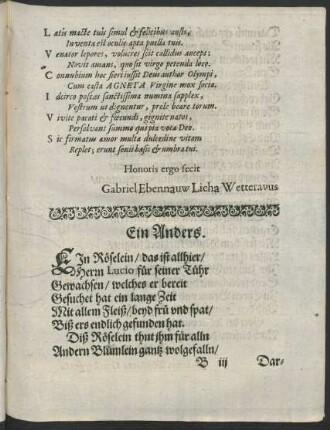 L atis macte tuis simul & felicibus ausis,
Inventa est oculis apta puella tuis.
V enator lepores, volucres scit callidus auceps;
Novit amans, quo sit virgo petenda loco.
C onnubium hoc fieri jussit Deus author Olympi,
Cum casta AGNETA Virgine mox socia.
I dcirco poscas sanctissima numina supplex,
Vestrum ut dignentur, prole beare torum.
V ivite parati & fœcundi, gignite natos,
Persolvant summo qui pia vota Deo.
S ic firmatus amor multa dulcedine vitam
Replet; erunt senii basis & umbra tui.
Honoris ergo fecit
Gabriel Ebennauw Licha Wetteravus
Ein Anders.
EIn Röselein / das ist allhier /
Herrn Lucio für seiner Tühr
Gewachsen / welches er bereit
Gesuchet hat ein lange Zeit
Mit allem Fleiß / beyd frü vnd spat /
Biß ers endlich gefunden hat.
Diß Röselein thut jhm für alln
Andern Blümlein gantz wolgefalln /
B iij Dar-